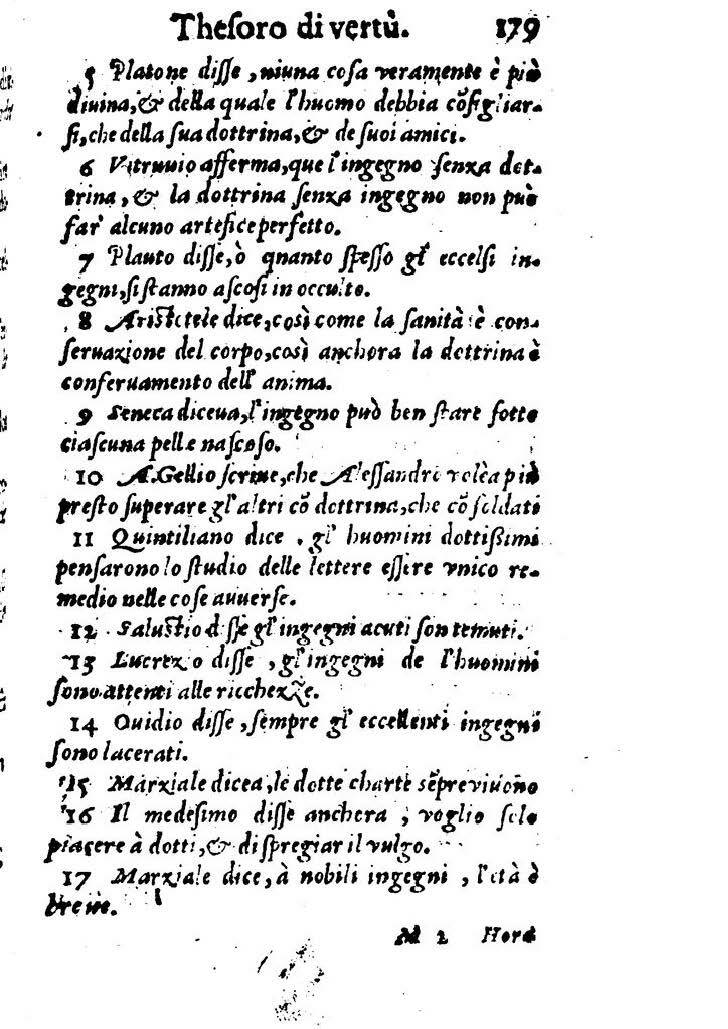 Theſoro di vertù. 179
5 Platone diſſe, niuna coſa veramente è più
diuina, & della quale l'huomo debbia cõſigliar-
ſi, che della ſua dottrina, & de ſuoi amici.
6 Vitruuio afferma, que l'ingegno ſenza dot-
trina, & la dottrina ſenza ingegno non può
far alcuno artefice perfetto.
7 Plauto diſſe, ò quanto ſpeſſo gl' eccelſi in-
gegni, ſi ſtanno aſcoſi in occulto.
8 Ariſtotele dice, così come la ſanità è con-
ſeruazione del corpo, così anchora la dottrina è
conſeruamento dell' anima.
9 Seneca diceua, l'ingegno può ben ſtare ſotto
ciaſcuna pelle naſcoſo.
10 A. Gellio ſcriue, che Aleſſandro volea più
preſto ſuperare gl'altri cõ dottrina, che cõ ſoldati
11 Quintiliano dice, gl' huomini dottißimi
penſarono lo ſtudio delle lettere eſſere vnico re-
medio nelle coſe auuerſe.
12 Saluſtio diſſe gl'ingegni acuti ſon temuti.
13 Lucrezio diſſe, gl'ingegni de l'huomini
ſono attenti alle ricchezze.
14 Ouidio diſſe, ſempre gl' eccellenti ingegni
ſono lacerati.
15 Marziale dicea, le dotte charte sẽpre viuono
16 Il medeſimo diſſe anchora, voglio ſolo
piacere à dotti, & diſpregiar il vulgo.
17 Marziale dice, à nobili ingegni, l'età è
breue.
M 2 Hora